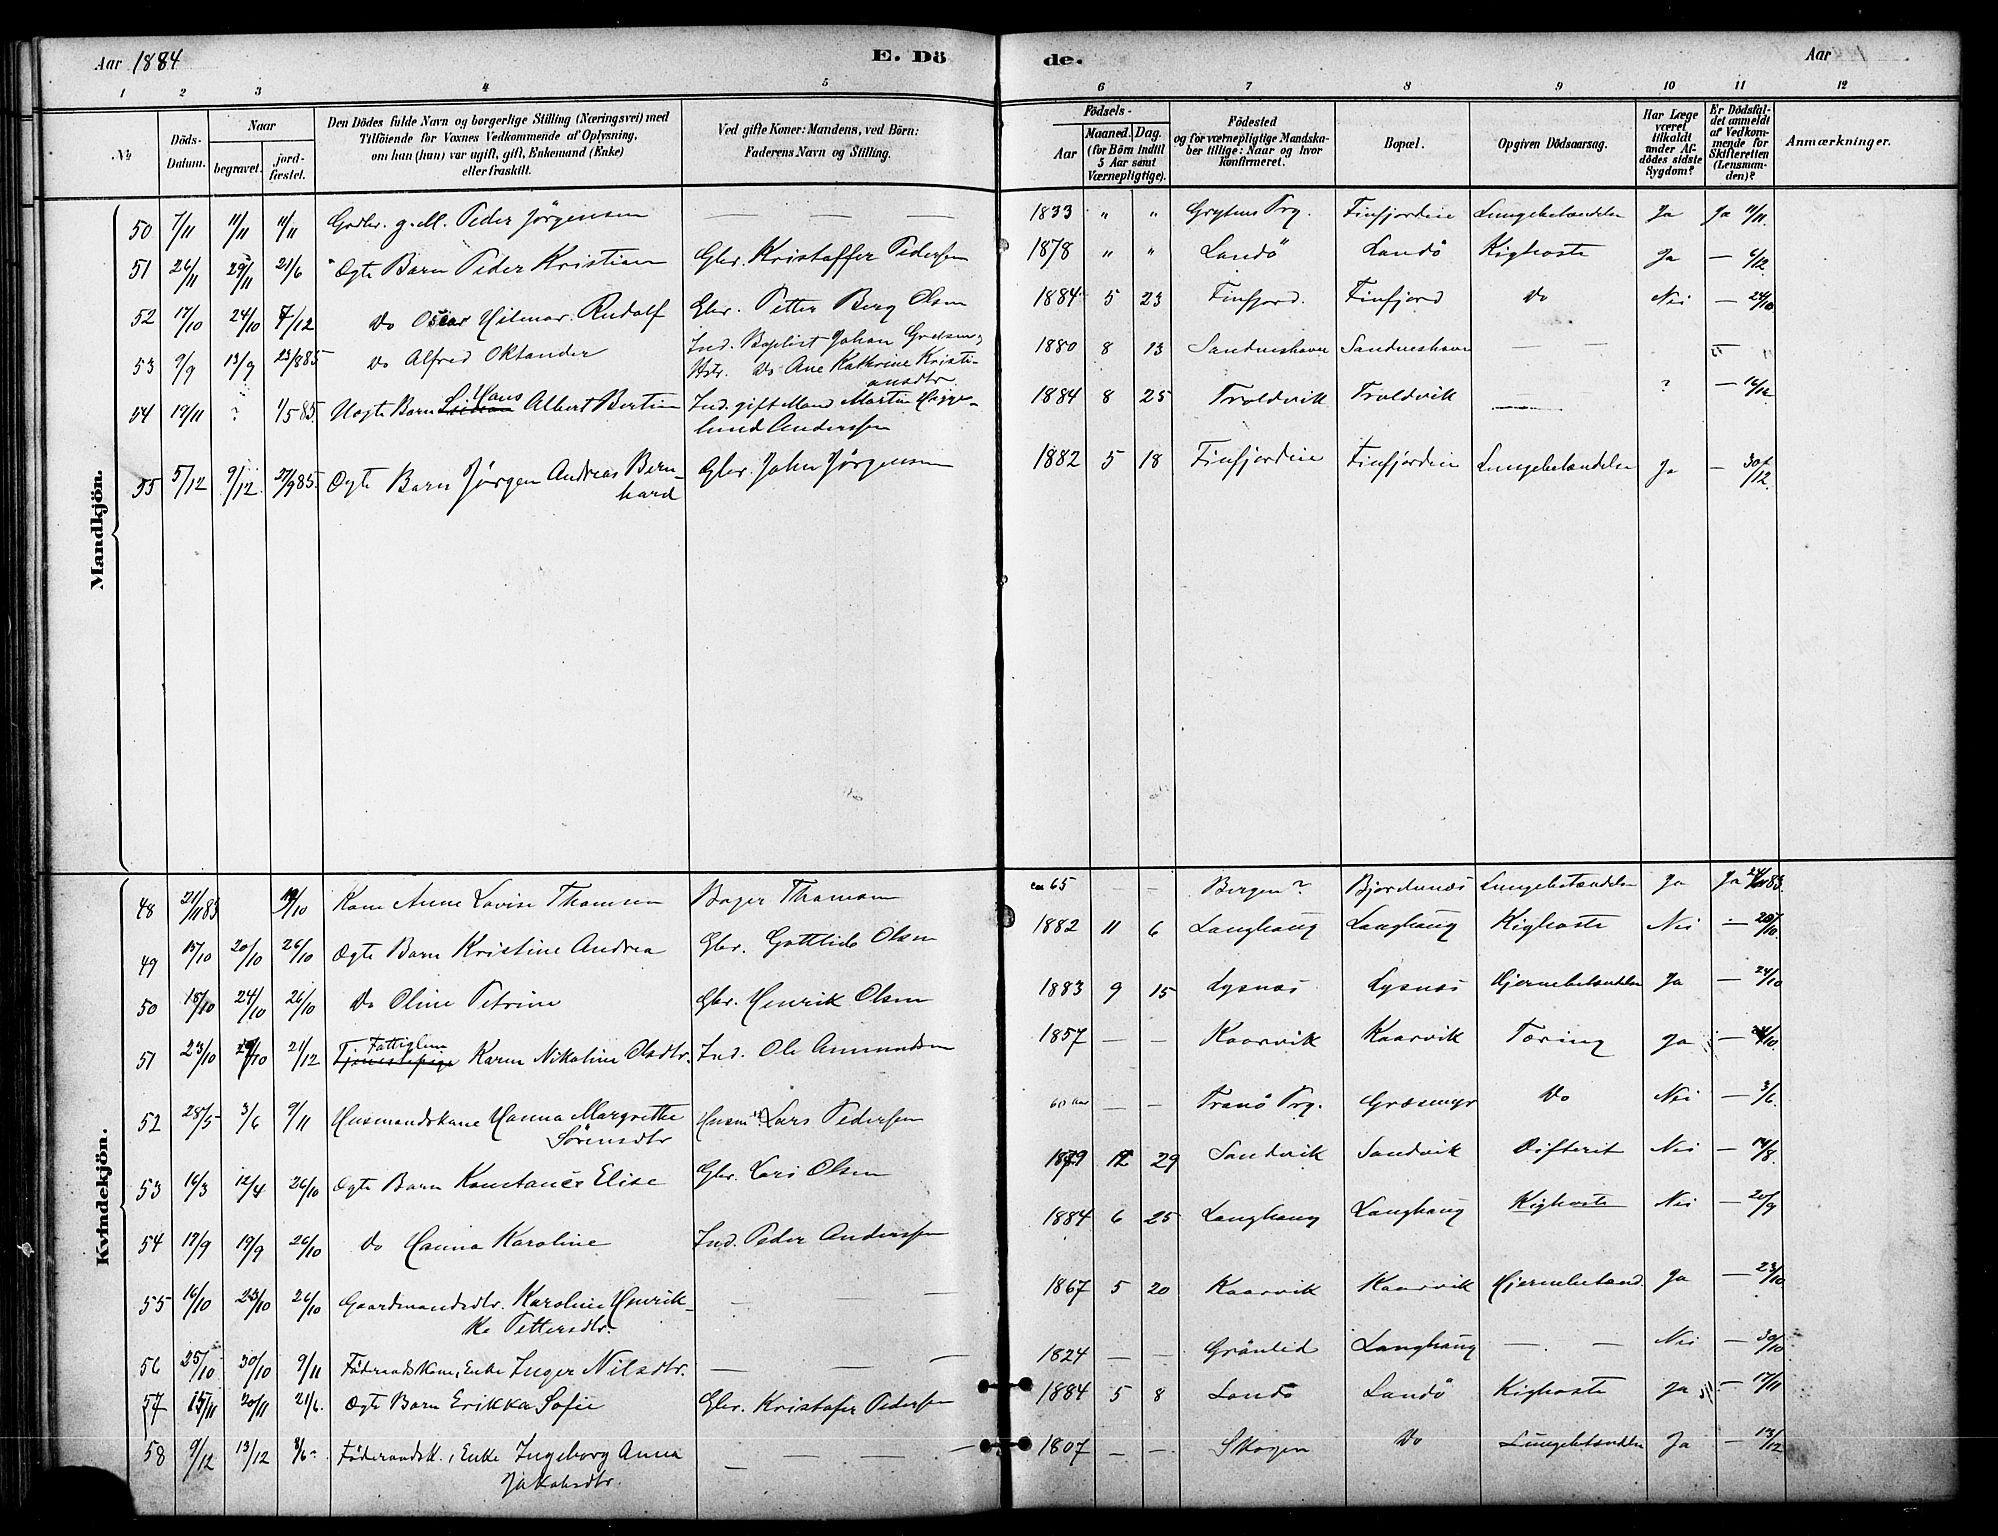 Aar 1884
E. Döde.
Aar
1 2 3 4 5 6 7 8 9 10 11 12
No
Döds-Datum.
Naar
begravet.
jordfæstet.
Den Dödes fulde Navn og borgerlige Stilling (Næringsvei) med
Tilföiende for Voxnes Vedkommende af Oplysning,
om han (hun) var ugift, gift, Enkemand (Enke)
eller fraskilt.
Ved gifte Koner: Mandens, ved Börn:
Faderens Navn og Stilling.
Födsels-
Aar
Maaned. Dag.
(for Börn indtil
5 Aar samt
Værnepligtige).
Födested
og for værnepligtige Mandska-
ber tillige: Naar og hvor
Konfirmeret.
Bopæl.
Opgiven Dödsaarsag.
Har Læge
været
tilkaldt
under Af-
dödes sidste
Sygdom?
Er Dödsfal-
det anmeldt
af Vedkom-
mende for
Skifteretten
(Lensman-
den)?
Anmærkninger.
Mandkjön.
50 7/11 11/11 11/11 Gadbr. g. M. Peder Jörgensen — — — 1833 " " Grytens Prg. Finfjordeie Lungebetændelse Ja Ja 11/11.
51 26/11 29/11 21/6 Ægte Barn Peder Kristian Gbr. Kristoffer Pedersen 1878 " " Landö Landö Kighoste Ja — 6/12.
52 17/10 24/10 7/12 Do Oscar Hilmar Rudolf Gbr. Petter Berg Olsen 1884 5 23 Finfjord. Finfjord Do Nei — 24/10
53 9/9 13/9 23/885 Do Alfred Oktander Ind. Baptist Johan
Hstr. Do Ane Kathrine Kristi-
ansdtr. 1880 8 13 Sandneshavn Sandneshavn — — " "
54 19/11 ? 1/5 85. Uægte Barn Hans Albert Bertin Ind. gift Mand Martin Hegge-
lund Anderssen 1884 8 25 Troldvik Troldvik — ? — 16/12
55 5/12 9/12. 27/985. Ægte Barn Jörgen Andreas Bern-
hard Gbr. John Jörgensen 1882 5 18 Finfjordeie Finfjordeie Lungebetændelse Ja — 30/12.
Kvindekjön.
48 21/11 83 19/10 Kone Anne Lovise Thomsen Bager Thomsen ca 65 — — Bergen? Bjordnnæs Lungebetændelse Ja Ja 83.
49 15/10 20/10 26/10 Ægte Barn Kristine Andrea Gbr. Gottlieb Olsen 1882 11 6 Langhaug Langhaug Kighoste Nei — 20/10.
50 18/10 24/10 26/10 Do Oline Petrine Gbr. Henrik Olsen 1883 9 15 Lysnæs Lysnæs Hjernebetændelse Ja — 24/10
51 23/10 29/10 21/12 Fattiglem
Tjenestepige Karen Nikoline Olsdtr. Ind. Ole Amundsen 1857 — — Kaarvik Kaarvik Tæring Ja — 29/10.
52 28/5 3/6 9/11 Husmandskone Hanna Margrethe
Sörensdtr Husm. Lars Pedersen 60 Aar — — Tranö Prg. Græsmyr Do Nei — 3/6.
53 16/3 12/4 26/10 Ægte Barn Konstance Elise Gbr. Lars Olsen 1879 12 29 Sandvik Sandvik Difterit Nei — 14/8.
54 12/9 19/9 26/10 Do Hanna Karoline Ind. Peder Anderssen 1884 6 25 Langhaug Langhaug Kighoste Nei — 20/9
55 16/10 23/10 26/10 Gaardmandsdtr. Karoline Henrik-
ke Pettersdtr. — — — 1867 5 20 Kaarvik Kaarvik Hjernebetænd. Ja — 23/10
56 25/10 30/10 9/11 Föderaadskone, Enke Inger Nilsdtr. — — — 1824 — — Grönlid Langhaug — — Nei — 30/10
57 15/11 20/11 21/6. Ægte Barn Erikka Sofie Gbr. Kristofer Pedersen 1884 5 8 Landö Landö Kighoste Ja — 17/11
58 9/12 13/12 8/6- Föderaadsk., Enke Ingeborg Anna
Jakobsdtr. — — — 1807 — — Skogen Do Lungebetændelse Ja — 13/12